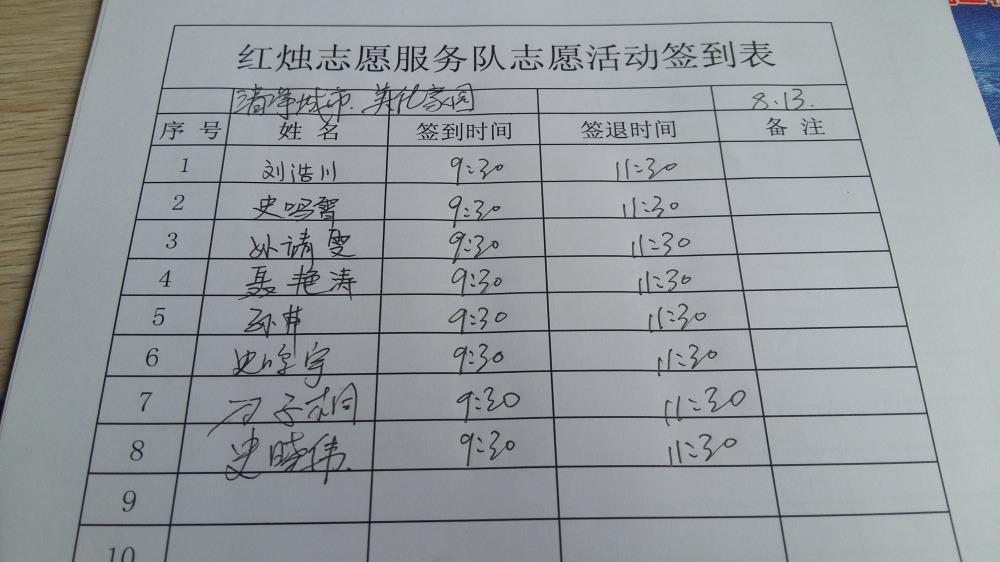 红烛志愿服务队志愿活动签到表
清净城市、美化家园 8.13.
序号 姓名 签到时间 签退时间 备注
1 刘浩川 9:30 11:30
2 史鸣智 9:30 11:30
3 9:30 11:30
4 聂艳涛 9:30 11:30
5 9:30 11:30
6 9:30 11:30
7 9:30 11:30
8 史晓伟 9:30 11:30
9
10